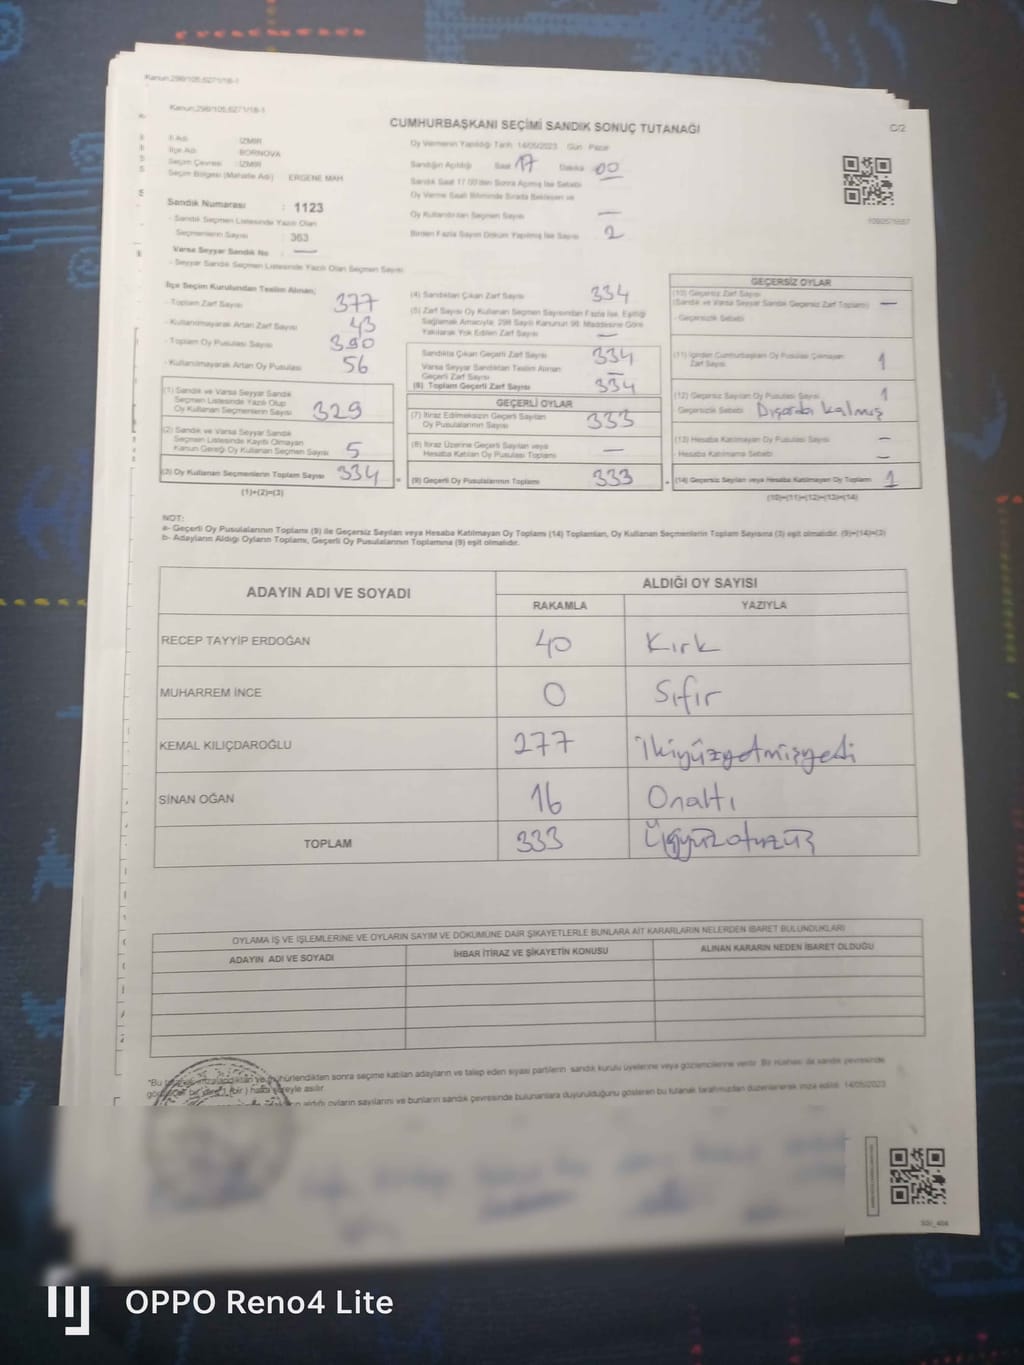 Kanun,298/105,6271/18-1
Kanun,298/105,6271/18-1
CUMHURBAŞKANI SEÇİMİ SANDIK SONUÇ TUTANAĞI
C/2
İl Adı : İZMİR
İlçe Adı : BORNOVA
Seçim Çevresi : İZMİR
Seçim Bölgesi (Mahalle Adı) ERGENE MAH
Sandık Numarası : 1123
- Sandık Seçmen Listesinde Yazılı Olan
Seçmenlerin Sayısı : 363
Varsa Seyyar Sandık No : —
- Seyyar Sandık Seçmen Listesinde Yazılı Olan Seçmen Sayısı
Oy Vermenin Yapıldığı Tarih 14/05/2023 Gün : Pazar
Sandığın Açıldığı Saat 17 Dakika 00
Sandık Saat 17.00'den Sonra Açılmış İse Sebebi
Oy Verme Saati Bitiminde Sırada Bekleyen ve
Oy Kullandırılan Seçmen Sayısı —
Birden Fazla Sayım Döküm Yapılmış İse Sayısı 2
İlçe Seçim Kurulundan Teslim Alınan;
- Toplam Zarf Sayısı 377
- Kullanılmayarak Artan Zarf Sayısı 43
- Toplam Oy Pusulası Sayısı 390
- Kullanılmayarak Artan Oy Pusulası 56
(1) Sandık ve Varsa Seyyar Sandık
Seçmen Listesinde Yazılı Olup
Oy Kullanan Seçmenlerin Sayısı 329
(2) Sandık ve Varsa Seyyar Sandık
Seçmen Listesinde Kayıtlı Olmayan
Kanun Gereği Oy Kullanan Seçmen Sayısı 5
(3) Oy Kullanan Seçmenlerin Toplam Sayısı 334
(1)+(2)=(3)
(4) Sandıktan Çıkan Zarf Sayısı 334
(5) Zarf Sayısı Oy Kullanan Seçmen Sayısından Fazla İse, Eşitliği
Sağlamak Amacıyla, 298 Sayılı Kanunun 98. Maddesine Göre
Yakılarak Yok Edilen Zarf Sayısı —
Sandıkta Çıkan Geçerli Zarf Sayısı 334
Varsa Seyyar Sandıktan Teslim Alınan
Geçerli Zarf Sayısı —
(6) Toplam Geçerli Zarf Sayısı 334
GEÇERLİ OYLAR
(7) İtiraz Edilmeksizin Geçerli Sayılan
Oy Pusulalarının Sayısı 333
(8) İtiraz Üzerine Geçerli Sayılan veya
Hesaba Katılan Oy Pusulası Toplamı —
(9) Geçerli Oy Pusulalarının Toplamı 333
GEÇERSİZ OYLAR
(10) Geçersiz Zarf Sayısı
(Sandık ve Varsa Seyyar Sandık Geçersiz Zarf Toplamı) —
- Geçersizlik Sebebi
(11) İçinden Cumhurbaşkanı Oy Pusulası Çıkmayan
Zarf Sayısı 1
(12) Geçersiz Sayılan Oy Pusulası Sayısı 1
Geçersizlik Sebebi Dışarda kalmış
(13) Hesaba Katılmayan Oy Pusulası Sayısı —
- Hesaba Katılmama Sebebi —
(14) Geçersiz Sayılan veya Hesaba Katılmayan Oy Toplamı 1
(10)+(11)+(12)+(13)=(14)
NOT:
a- Geçerli Oy Pusulalarının Toplamı (9) ile Geçersiz Sayılan veya Hesaba Katılmayan Oy Toplamı (14) Toplamları, Oy Kullanan Seçmenlerin Toplam Sayısına (3) eşit olmalıdır. (9)+(14)=(3)
b- Adayların Aldığı Oyların Toplamı, Geçerli Oy Pusulalarının Toplamına (9) eşit olmalıdır.
ADAYIN ADI VE SOYADI ALDIĞI OY SAYISI
RAKAMLA YAZIYLA
RECEP TAYYİP ERDOĞAN 40 Kırk
MUHARREM İNCE 0 Sıfır
KEMAL KILIÇDAROĞLU 277 İkiyüzyetmişyedi
SİNAN OĞAN 16 Onaltı
TOPLAM 333 Üçyüzotuzüç
OYLAMA İŞ VE İŞLEMLERİNE VE OYLARIN SAYIM VE DÖKÜMÜNE DAİR ŞİKAYETLERLE BUNLARA AİT KARARLARIN NELERDEN İBARET BULUNDUKLARI
ADAYIN ADI VE SOYADI İHBAR İTİRAZ VE ŞİKAYETİN KONUSU ALINAN KARARIN NEDEN İBARET OLDUĞU
mühürlendikten sonra seçime katılan adayların ve talep eden siyasi partilerin sandık kurulu üyelerine veya gözlemcilerine verilir. Bir nüshası da sandık çevresinde
süreyle asılır.
aldığı oyların sayılarını ve bunların sandık çevresinde bulunanlara duyurulduğunu gösteren bu tutanak tarafımızdan düzenlenerek imza edildi. 14/05/2023
OPPO Reno4 Lite